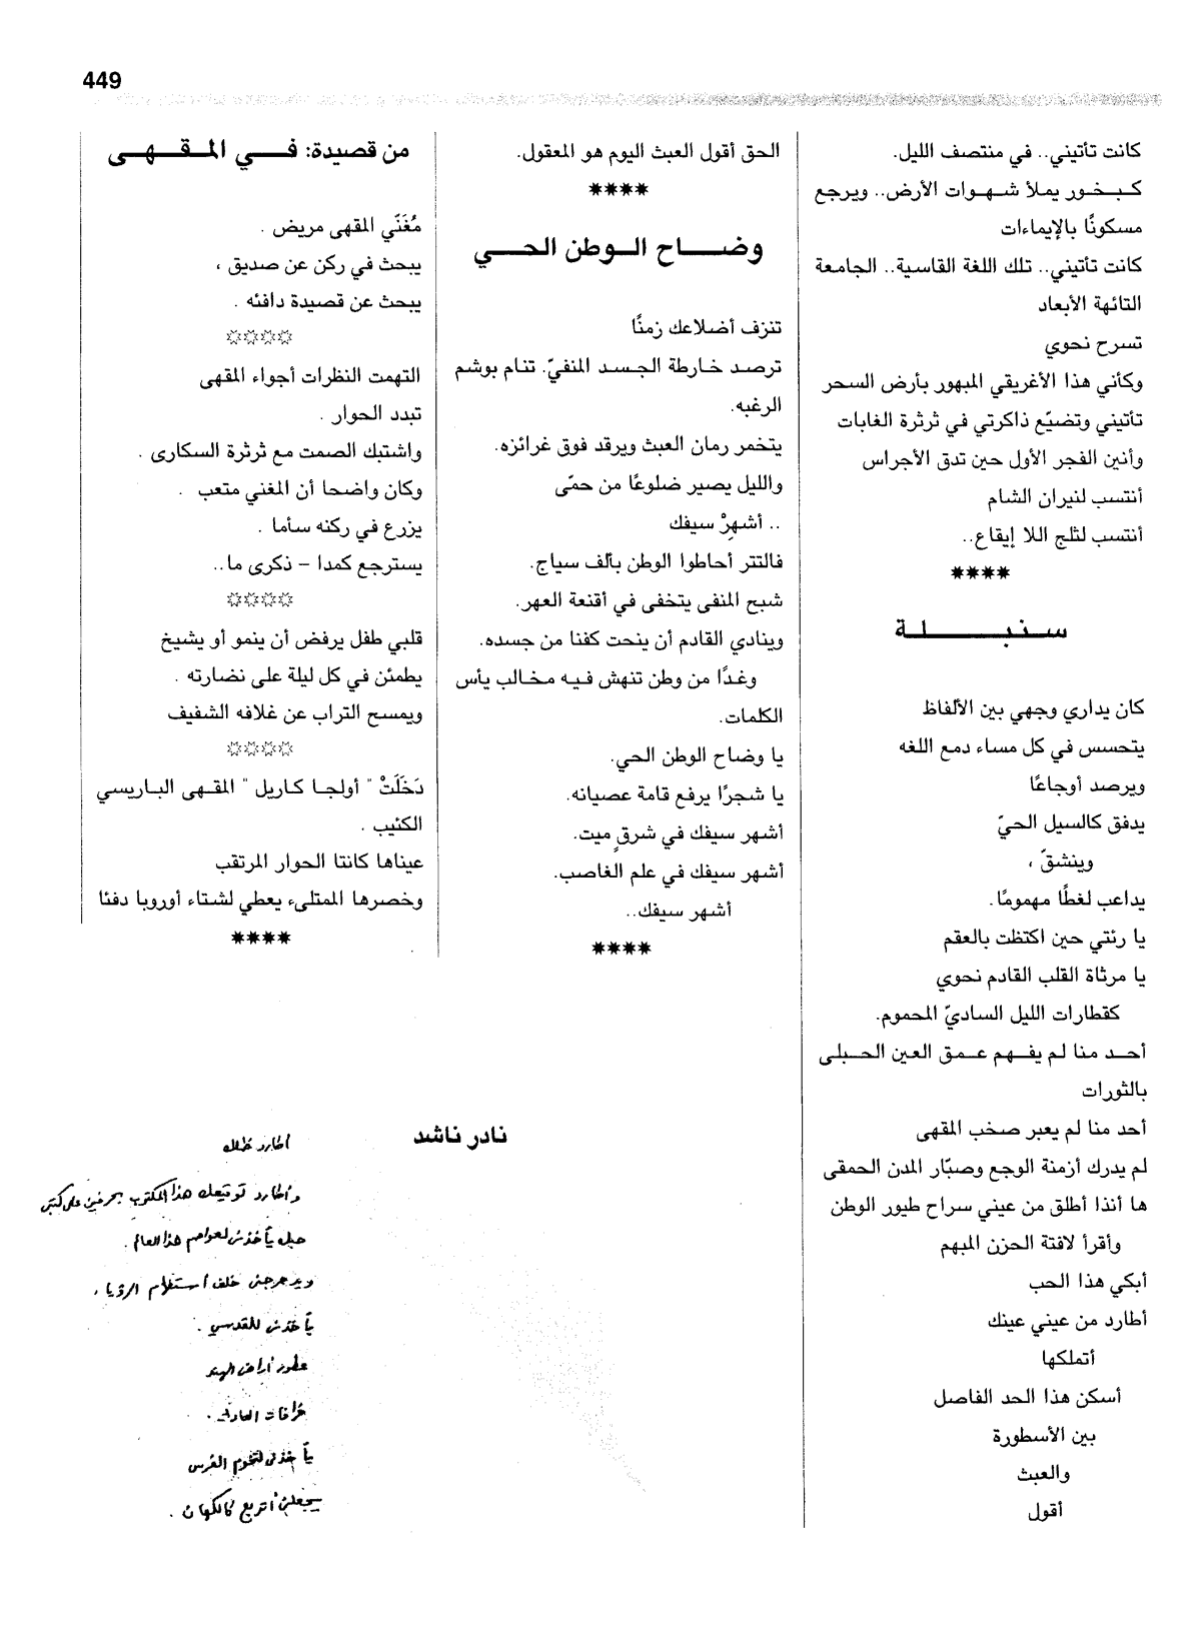 449
كانت تأتيني.. في منتصف الليل.
كبخور يملأ شهوات الأرض.. ويرجع
مسكونًا بالإيماءات
كانت تأتيني.. تلك اللغة القاسية.. الجامعة
التائهة الأبعاد
تسرح نحوي
وكأني هذا الأغريقي المبهور بأرض السحر
تأتيني وتضيّع ذاكرتي في ثرثرة الغابات
وأنين الفجر الأول حين تدق الأجراس
أنتسب لنيران الشام
أنتسب لثلج اللا إيقاع..
****
سنبلة
كان يداري وجهي بين الألفاظ
يتحسس في كل مساء دمع اللغه
ويرصد أوجاعًا
يدفق كالسيل الحيّ
وينشقّ ،
يداعب لغطًا مهمومًا.
يا رئتي حين اكتظت بالعقم
يا مرثاة القلب القادم نحوي
كقطارات الليل الساديّ المحموم.
أحد منا لم يفهم عمق العين الحبلى
بالثورات
أحد منا لم يعبر صخب المقهى
لم يدرك أزمنة الوجع وصبّار المدن الحمقى
ها أنذا أطلق من عيني سراح طيور الوطن
وأقرأ لافتة الحزن المبهم
أبكي هذا الحب
أطارد من عيني عينك
أتملكها
أسكن هذا الحد الفاصل
بين الأسطورة
والعبث
أقول
الحق أقول العبث اليوم هو المعقول.
****
وضاح الوطن الحي
تنزف أضلاعك زمنًا
ترصد خارطة الجسد المنفيّ. تنام بوشم
الرغبه.
يتخمر رمان العبث ويرقد فوق غرائزه.
والليل يصير ضلوعًا من حمّى
.. أشهِرْ سيفك
فالتتر أحاطوا الوطن بألف سياج.
شبح المنفى يتخفى في أقنعة العهر.
وينادي القادم أن ينحت كفنا من جسده.
وغدًا من وطن تنهش فيه مخالب يأس
الكلمات.
يا وضاح الوطن الحي.
يا شجرًا يرفع قامة عصيانه.
أشهر سيفك في شرقٍ ميت.
أشهر سيفك في علم الغاصب.
أشهر سيفك..
****
من قصيدة: في المقهى
مُغَنّي المقهى مريض .
يبحث في ركن عن صديق ،
يبحث عن قصيدة دافئه .
☼☼☼☼
التهمت النظرات أجواء المقهى
تبدد الحوار .
واشتبك الصمت مع ثرثرة السكارى .
وكان واضحا أن المغني متعب .
يزرع في ركنه سأما .
يسترجع كمدا – ذكرى ما..
☼☼☼☼
قلبي طفل يرفض أن ينمو أو يشيخ
يطمئن في كل ليلة على نضارته .
ويمسح التراب عن غلافه الشفيف
☼☼☼☼
دَخَلَتْ " أولجا كاريل " المقهى الباريسي
الكئيب .
عيناها كانتا الحوار المرتقب
وخصرها الممتلىء يعطي لشتاء أوروبا دفئا
****
نادر ناشد
أطارد ظلك
وأطارد توقيعك هذا المكتوب بحرفين على كتبي
يأخذني لعواصم هذا العالم .
ويدحرجني خلف استلام الرؤيا .
يأخذني للقدس .
عطور أراضي الهند
خرافات .
يأخذني لتخوم الفرس
يجعلني أتربع كالكهان .